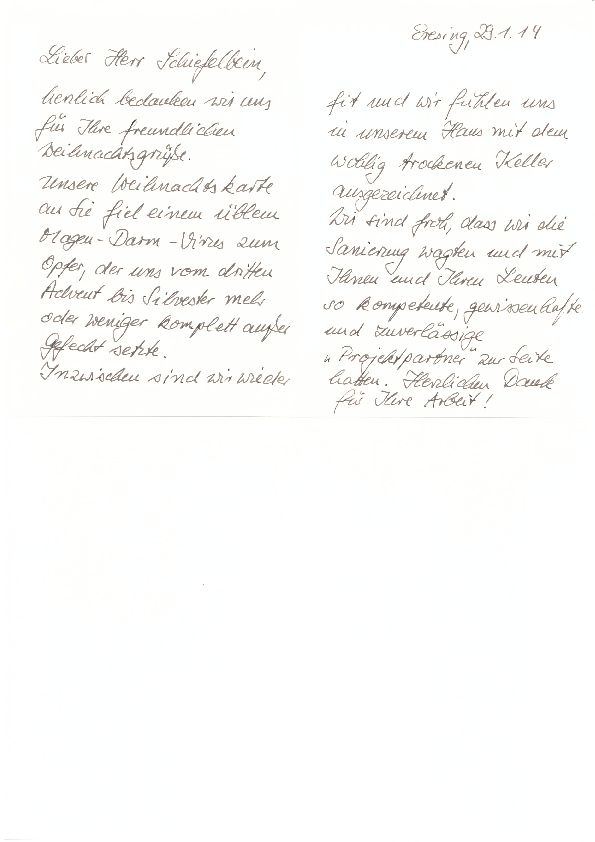 Eresing, 29.1.14
Lieber Herr Schiefelbein,
herzlich bedanken wir uns
für Ihre freundlichen
Weihnachtsgrüße.
Unsere Weihnachtskarte
an Sie fiel einem üblem
Magen-Darm-Virus zum
Opfer, der uns vom dritten
Advent bis Silvester mehr
oder weniger komplett außer
Gefecht setzte.
Inzwischen sind wir wieder
fit und wir fühlen uns
in unserem Haus mit dem
wohlig trockenen Keller
ausgezeichnet.
Wir sind froh, dass wir die
Sanierung wagten und mit
Ihnen und Ihren Leuten
so kompetente, gewissenhafte
und zuverlässige
„Projektpartner" zur Seite
hatten. Herzlichen Dank
für Ihre Arbeit!